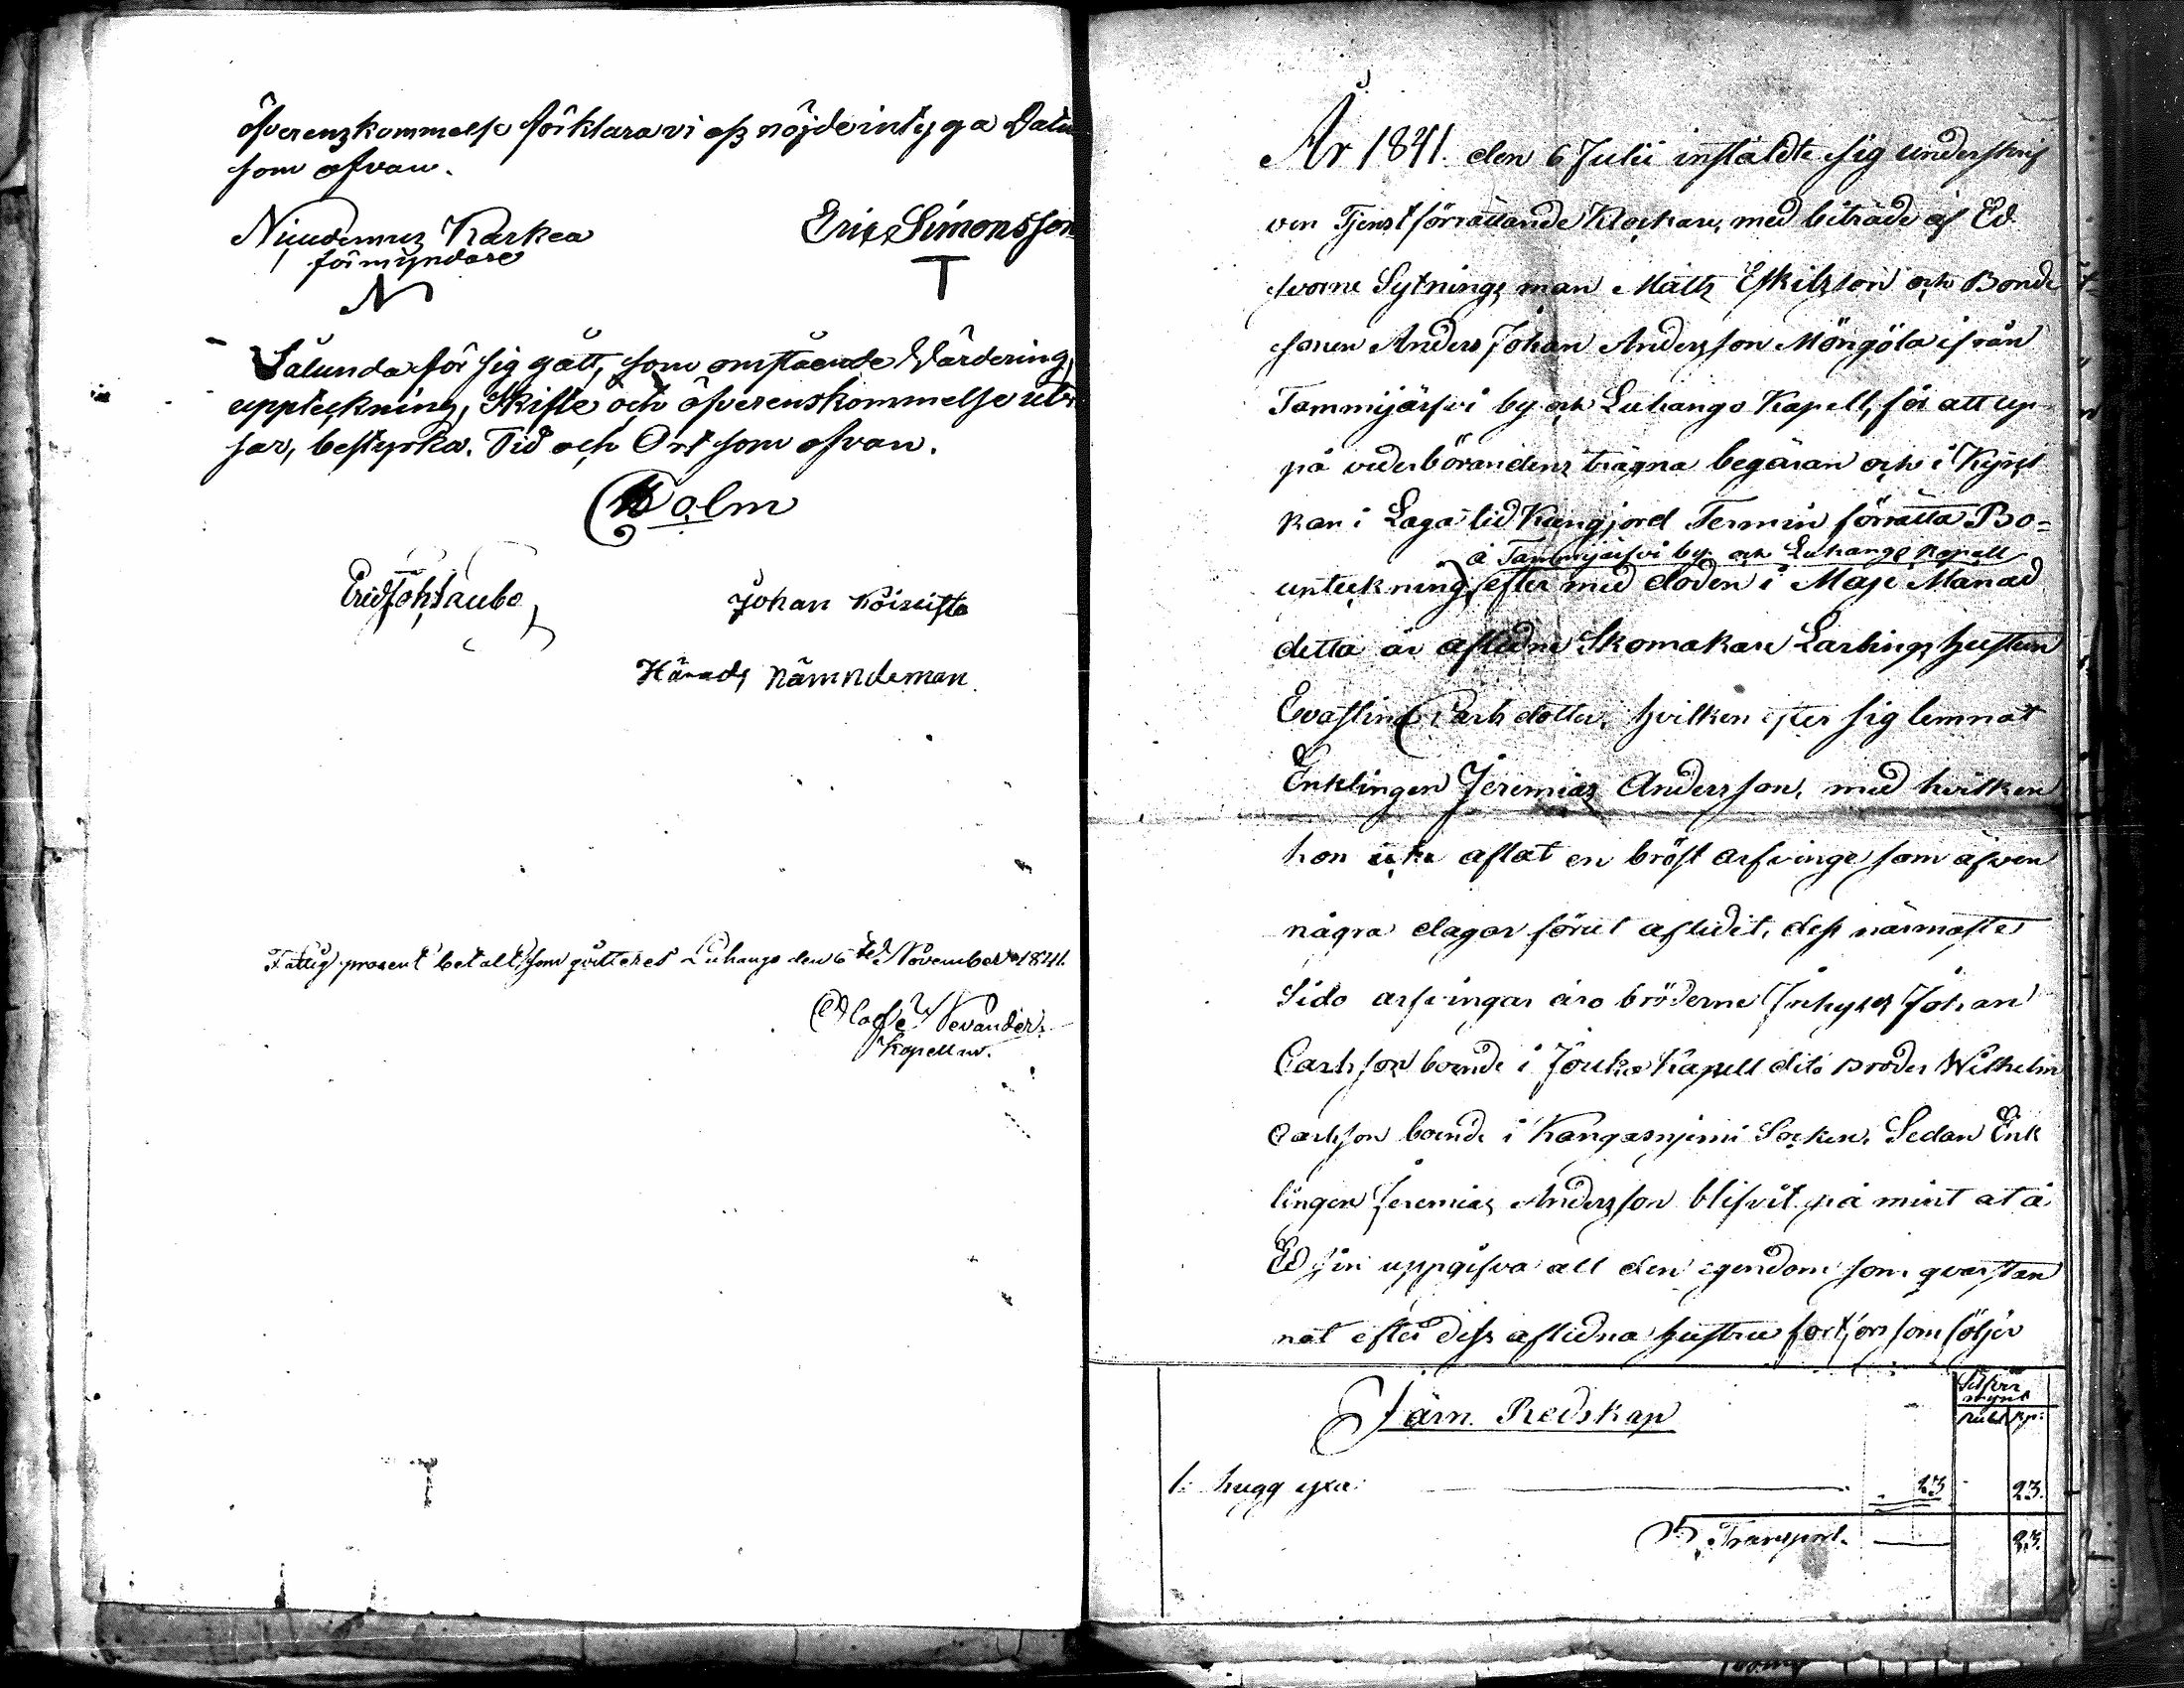 öfverenskommelse förklara vi oss nöjde intyga Datu
som ofvan.
Nicodemus Karkea Eric Simonsson
förmyndare
N T
Sålunda för sig gått, som omstående Värdering,
uppteckning, Skifte och öfverenskommelse utvi
sar, bestyrka. Tid och Ort som ofvan.
Holm
Johan Koivisto
Härads Nämndeman
Fattig procent betalt, som quitteres Luhango den 6te November 1841.
Olof Nevander
Kapellan.
År 1841. den 6 Julii instälde sig underskrif
ven Tjenstförrättande Klockare, med biträde af Ed
svorne Sytnings man Matts Eskilsson och Bonde
sonen Anders Johan Andersson Möngölä ifrån
Tammijärfvi by och Luhango Kapell, för att up
på vederbörandens trägna begäran och i Kyrc
kan i Laga tid Kungjord Termin förrätta Bo=
å Tammijärfvi by och Luhango Kapell
upteckning, efter med döden i Maje Månad
detta år aflidne Skomakare Larbings hustru
Evastina Carls dotter, hvilken efter sig lemnat
Enklingen Jeremias Andersson, med hvilken
hon icke aflat en bröst arfvinge som äfven
några dagar förut aflidit, dess närmaste
Sido arfvingar äro bröderne Inhyses Johan
Carlsson boende i Joutsa Kapell dito Broder Wilhelm
Carlsson boende i Kangasnjemi Socken. Sedan Enk
lingen Jeremias Andersson blifvit på mint at å
Ed sin uppgifva all den egendom som qvarstan
nat efter dess aflidna hustru fortfors som följer
Silfver
mynt
Järn Redskap Rubl. Kp:
1: hugg yxa 23 23.
Transport. 23.